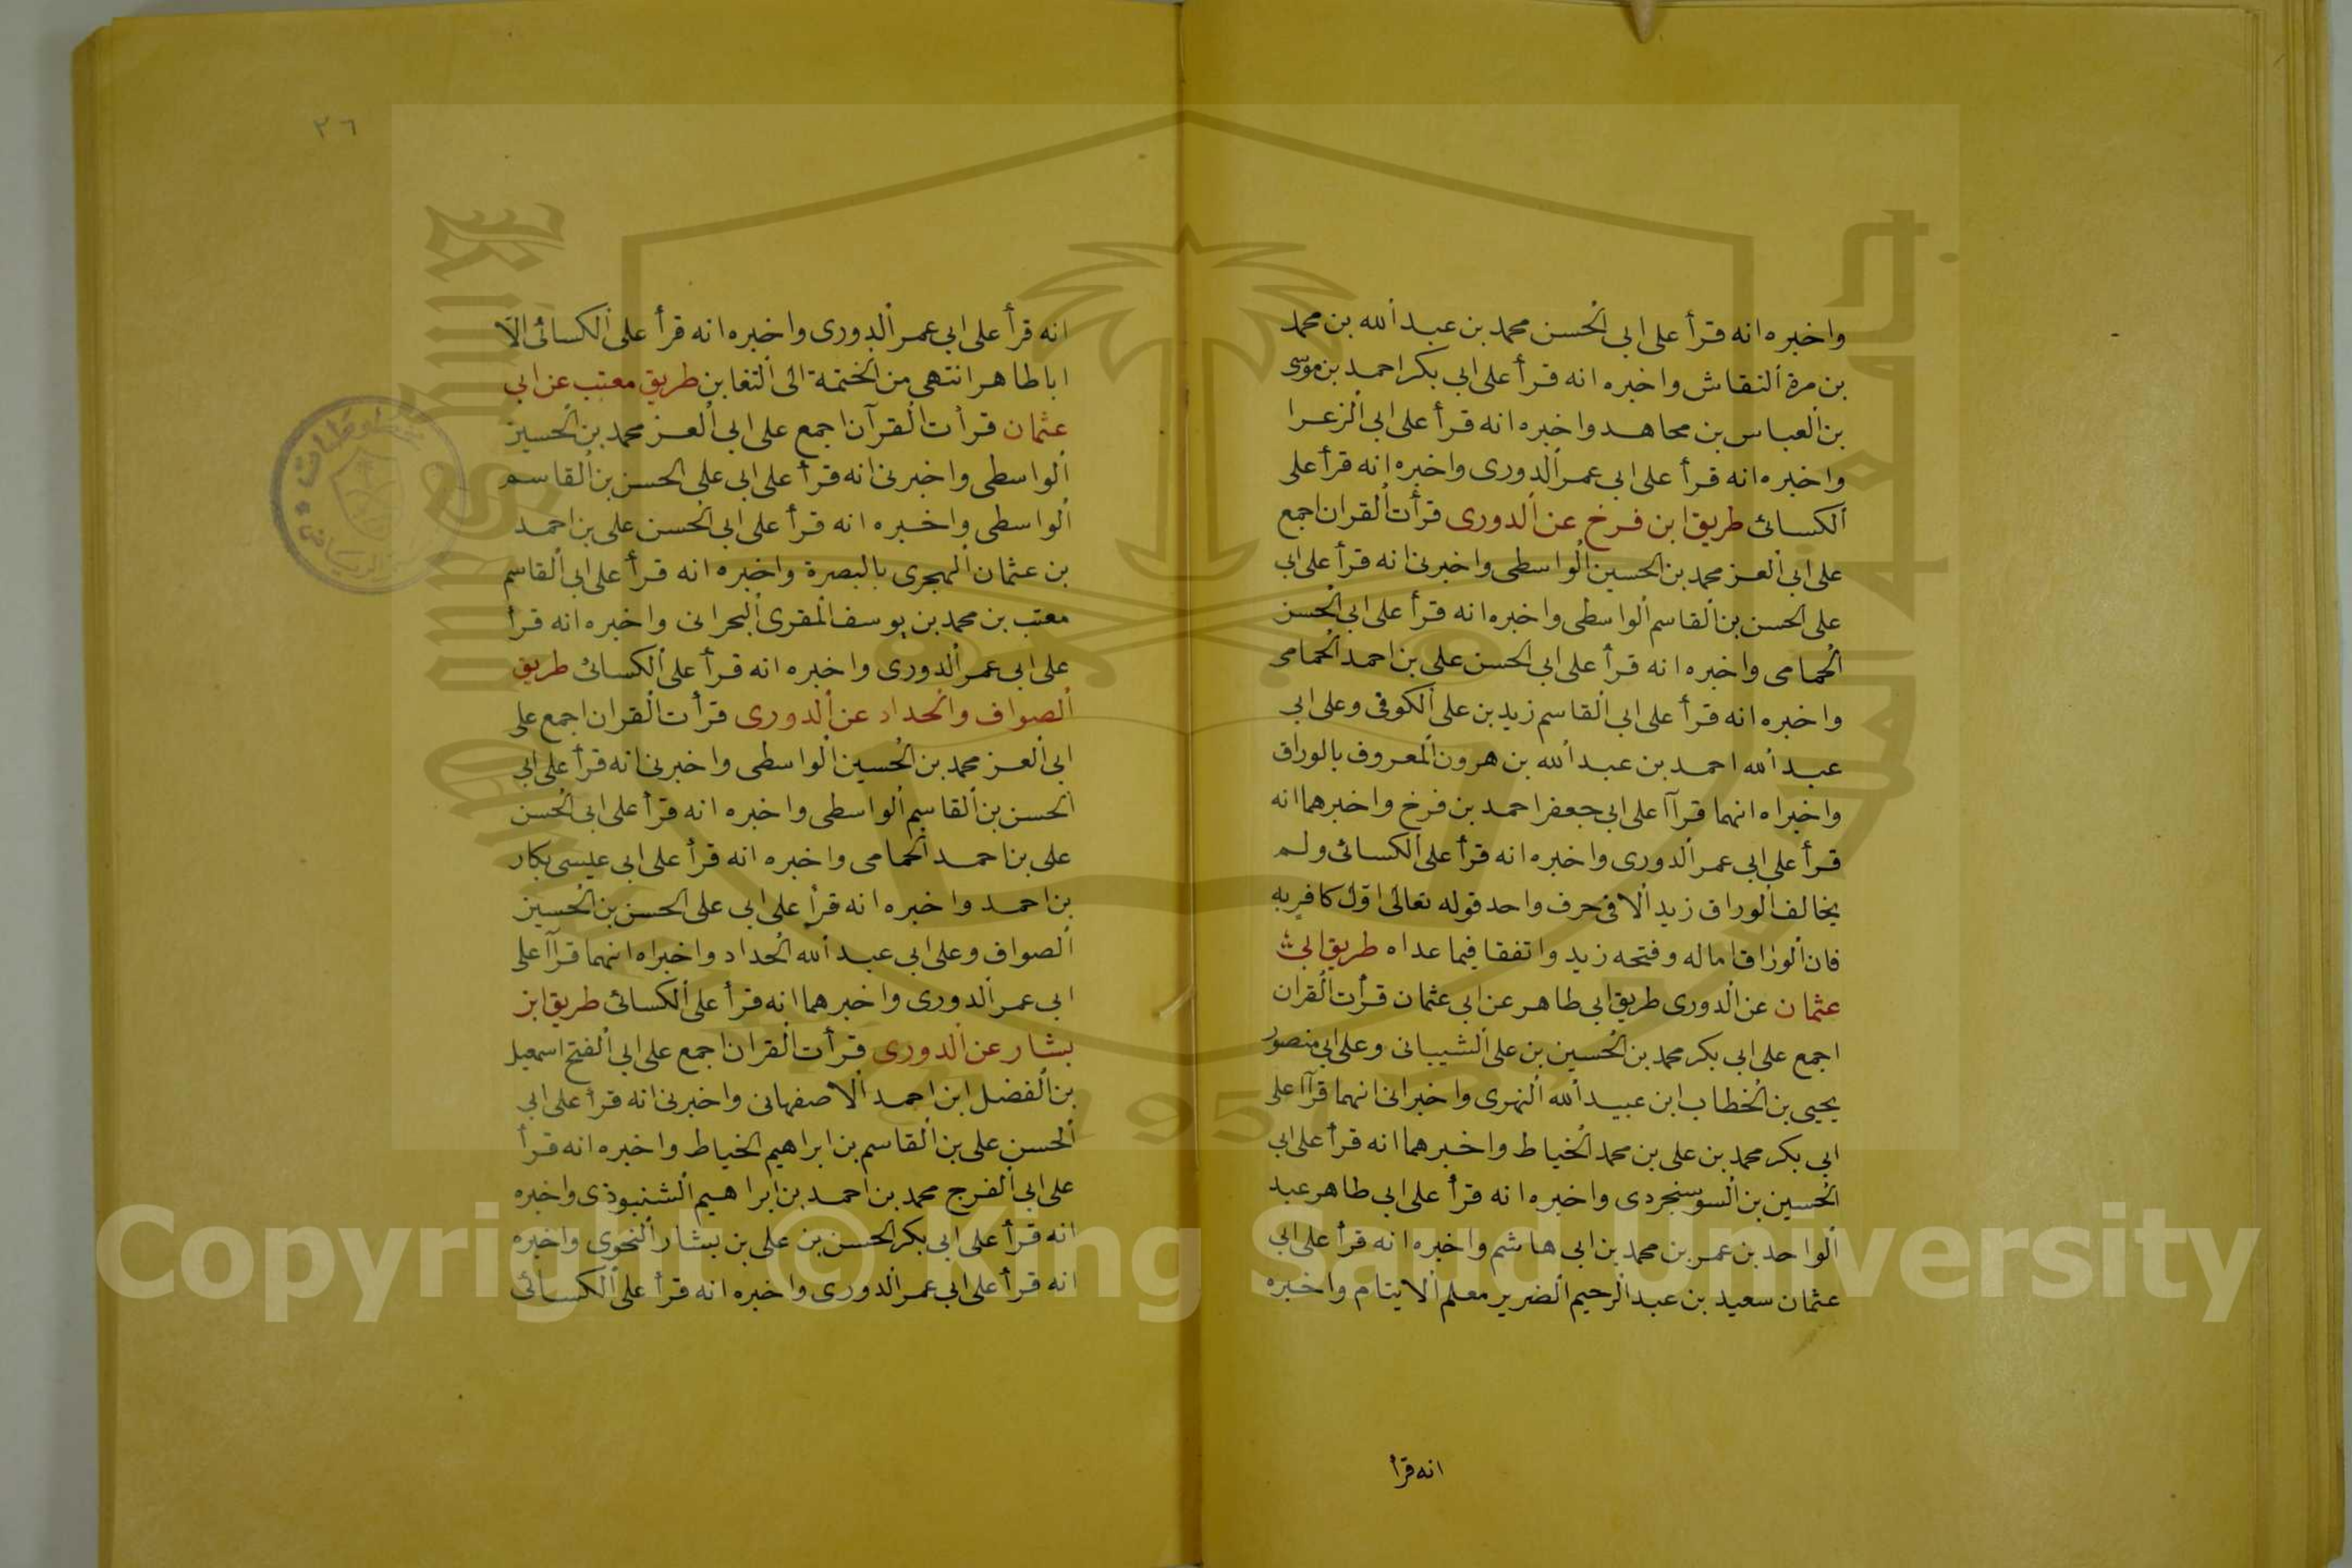 واخبره انه قرأ على ابى الحسن محمد بن عبد الله بن محمد
بن مرة النقاش واخبره انه قرأ على ابى بكر احمد بن موسى
بن العباس بن مجاهد واخبره انه قرأ على ابى الزعرا
واخبره انه قرأ على ابى عمر الدورى واخبره انه قرأ على
الكسائى طريق ابن فرخ عن الدورى قرأت القران اجمع
على ابى العز محمد بن الحسين الواسطى واخبرنى انه قرأ على ابى
على الحسن بن القاسم الواسطى واخبره انه قرأ على ابى الحسن
الحمامى واخبره انه قرأ على ابى الحسن على بن احمد الحمامى
واخبره انه قرأ على ابى القاسم زيد بن على الكوفى وعلى ابى
عبد الله احمد بن عبد الله بن هرون المعروف بالوراق
واخبراه انهما قرآا على ابى جعفر احمد بن فرخ واخبرهما انه
قرأ على ابى عمر الدورى واخبره انه قرأ على الكسائى ولم
يخالف الوراق زيد الا فى حرف واحد قوله تعالى اوّل كافر به
فان الوراق اماله وفتحه زيد واتفقا فيما عداه طريق ابى
عثمان عن الدورى طريق ابى طاهر عن ابى عثمان قرأت القران
اجمع على ابى بكر محمد بن الحسين بن على الشيبانى وعلى ابى منصور
يحيى بن الخطاب ابن عبيد الله النهرى واخبرانى انهما قرآا على
ابى بكر محمد بن على بن محمد الخياط واخبرهما انه قرأ على ابى
الحسين بن السوسنجردى واخبره انه قرأ على ابى طاهر عبد
الواحد بن عمر بن محمد بن ابى هاشم واخبره انه قرأ على ابى
عثمان سعيد بن عبد الرحيم الضرير معلم الايتام واخبره
انه قرأ
٢٦
انه قرأ على ابى عمر الدورى واخبره انه قرأ على الكسائى الّا
اباطاهر انتهى من الختمة الى التغابن طريق معتب عن ابى
عثمان قرأت القرآن اجمع على ابى العز محمد بن الحسين
الواسطى واخبرنى انه قرأ على ابى على الحسن بن القاسم
الواسطى واخبره انه قرأ على ابى الحسن على بن احمد
بن عثمان الهجرى بالبصرة واخبره انه قرأ على ابى القاسم
معتب بن محمد بن يوسف المقرى البحرانى واخبره انه قرأ
على ابى عمر الدورى واخبره انه قرأ على الكسائى طريق
الصواف والحداد عن الدورى قرأت القران اجمع على
ابى العز محمد بن الحسين الواسطى واخبرنى انه قرأ على ابى
الحسن بن القاسم الواسطى واخبره انه قرأ على ابى الحسن
على بن احمد الحمامى واخبره انه قرأ على ابى عيسى بكار
بن احمد واخبره انه قرأ على ابى على الحسن بن الحسين
الصواف وعلى ابى عبد الله الحداد واخبراه انهما قرآا على
ابى عمر الدورى واخبرهما انه قرأ على الكسائى طريق ابن
بشار عن الدورى قرأت القران اجمع على ابى الفتح اسمعيل
بن الفضل ابن احمد الاصفهانى واخبرنى انه قرأ على ابى
الحسن على بن القاسم بن ابراهيم الخياط واخبره انه قرأ
على ابى الفرج محمد بن احمد بن ابراهيم الشنبوذى واخبره
انه قرأ على ابى بكر الحسن بن على بن بشار النحوى واخبره
انه قرأ على ابى عمر الدورى واخبره انه قرأ على الكسائى
Copyright © King Saud University
1957